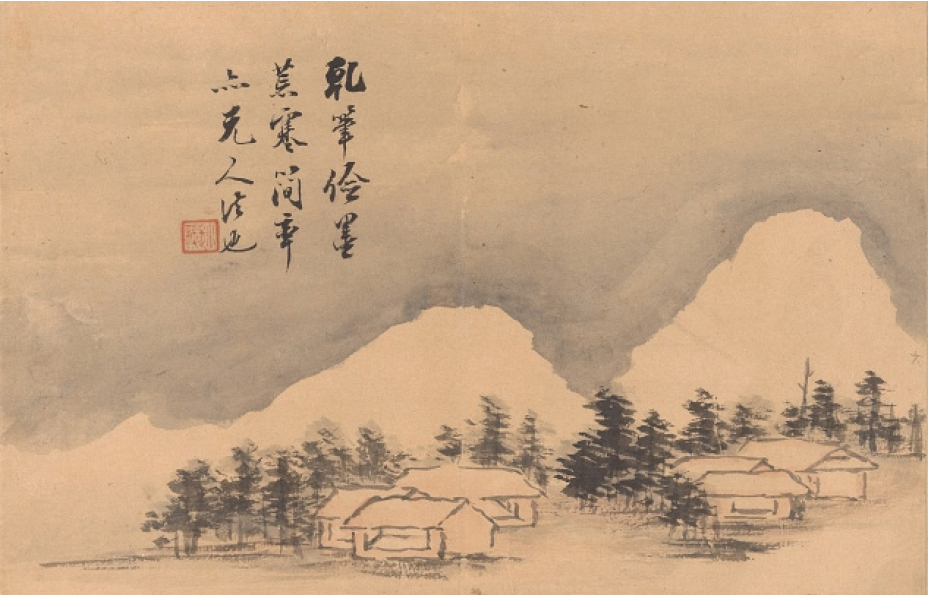 乾筆儉墨
荒寒簡率
亦元人法也